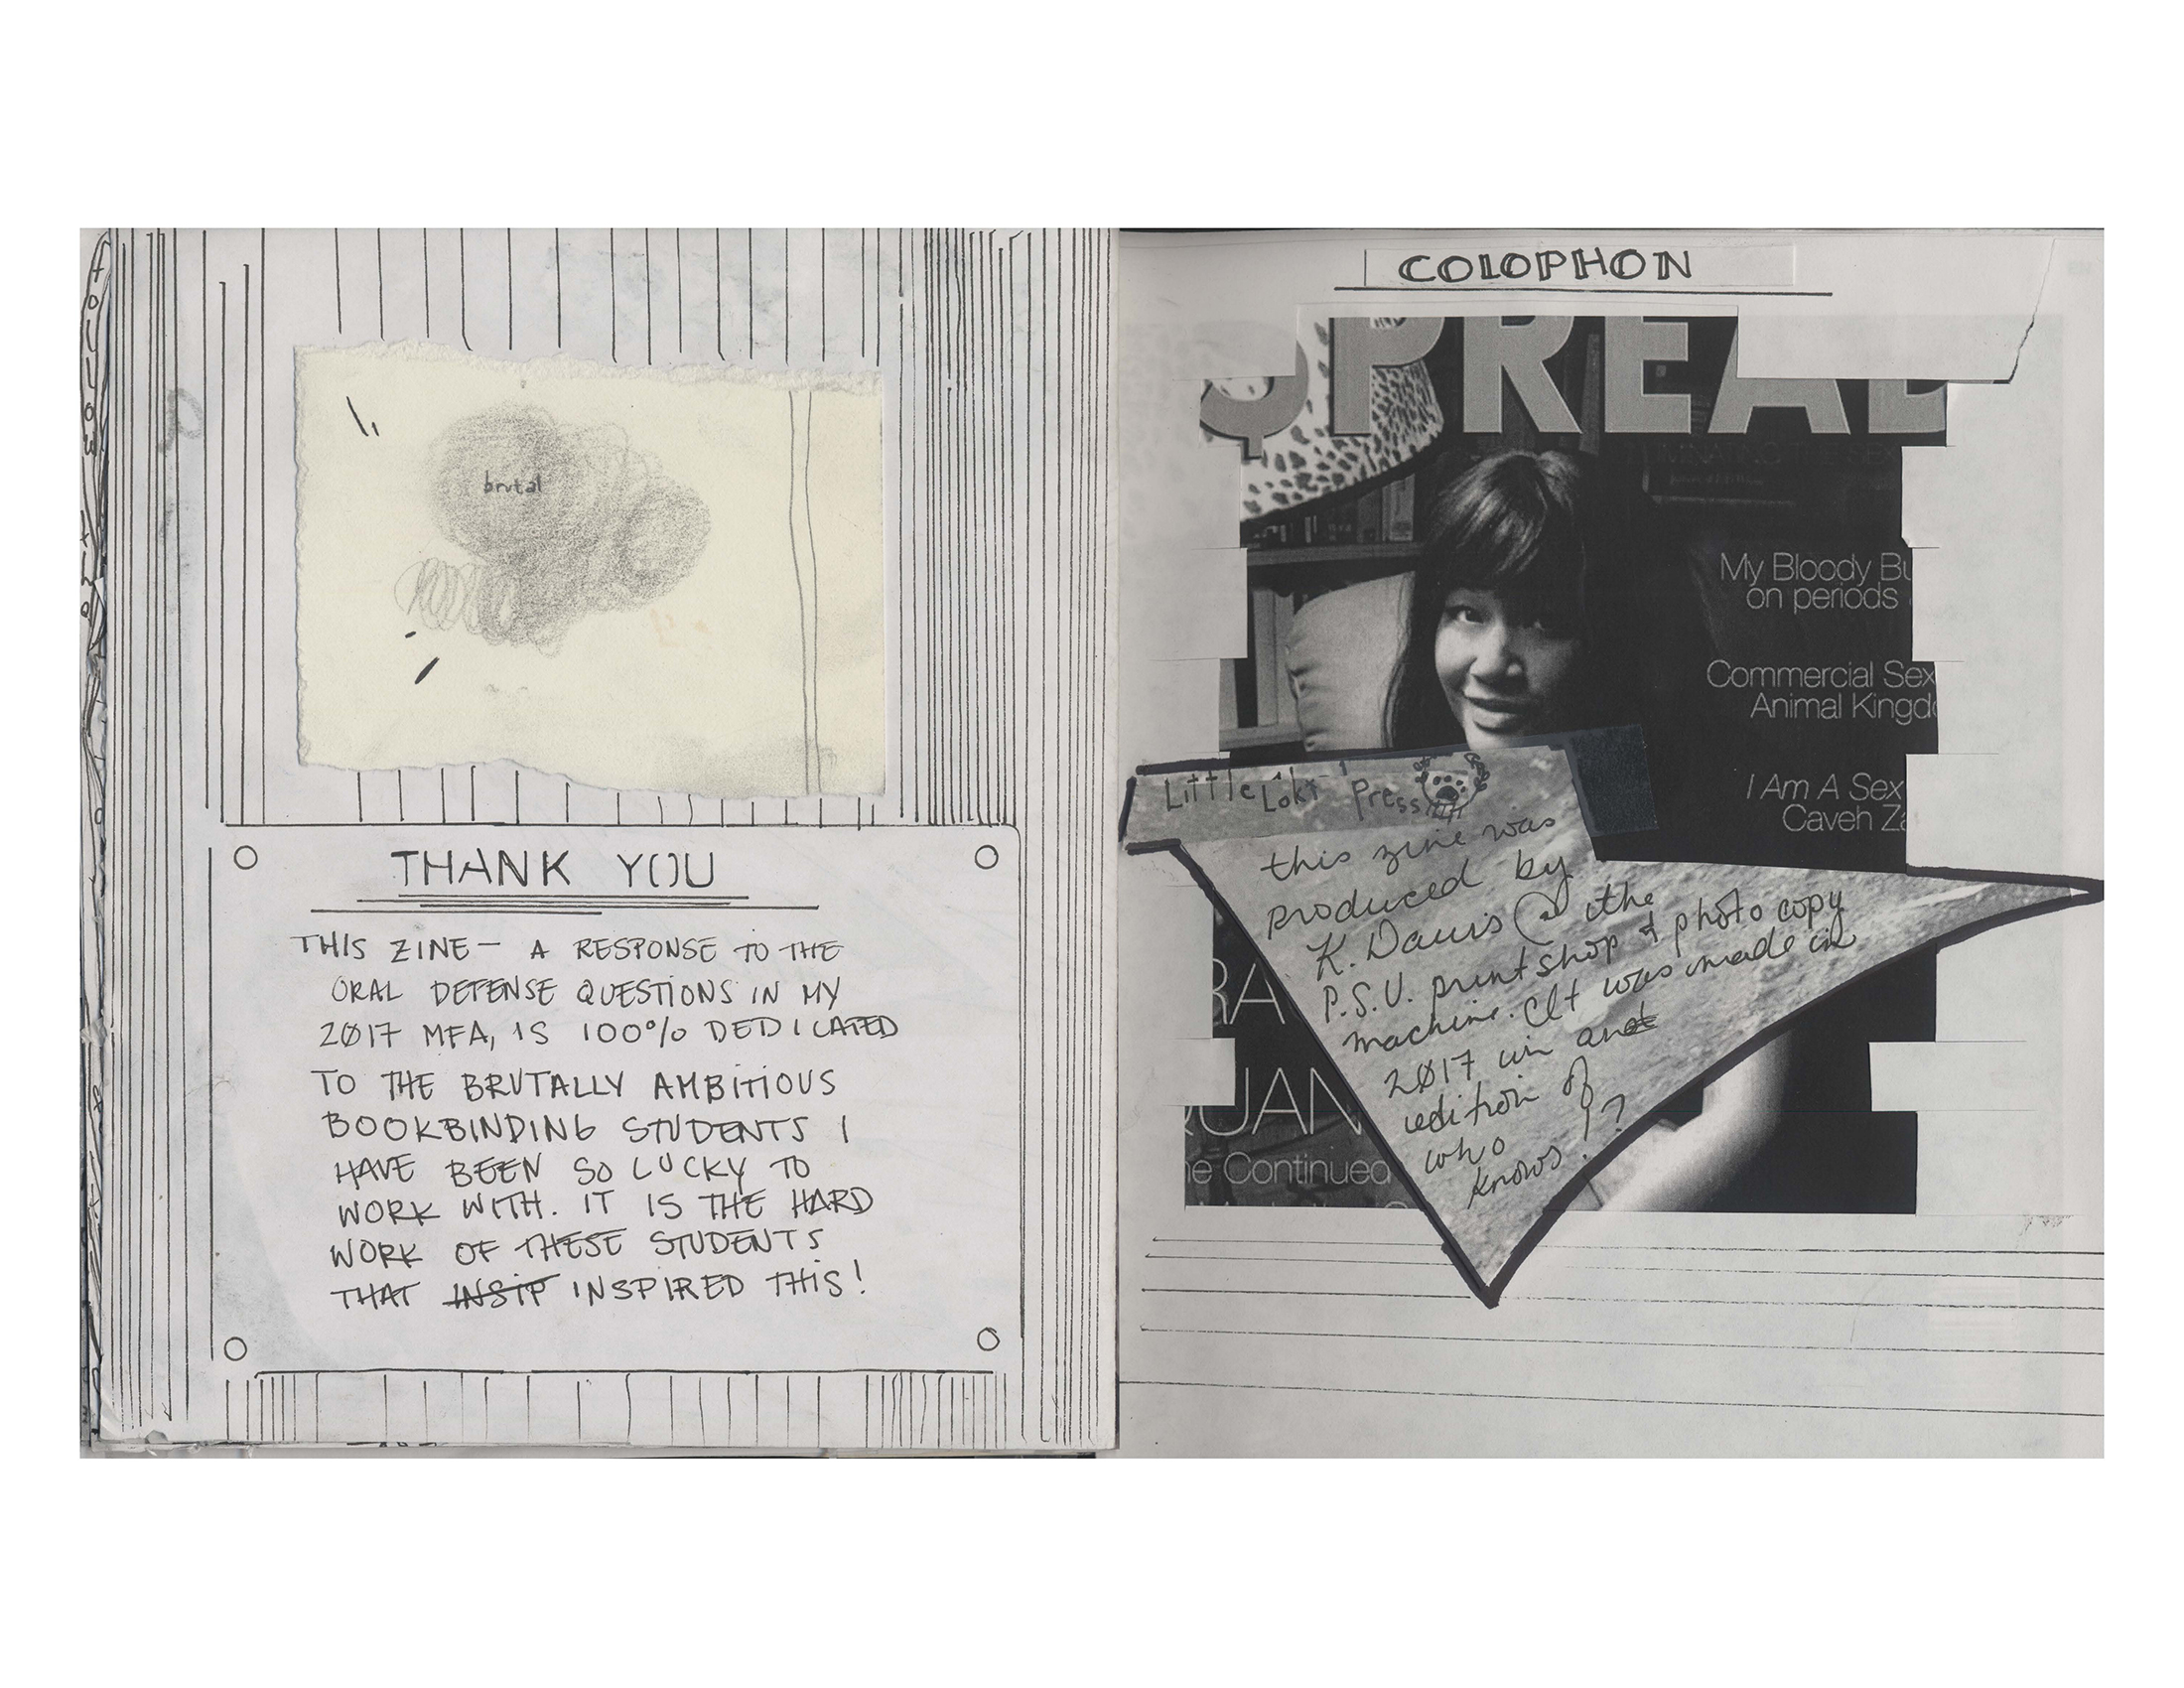 brutal
THANK YOU
THIS ZINE — A RESPONSE TO THE
ORAL DEFENSE QUESTIONS IN MY
2017 MFA, IS 100% DEDICATED
TO THE BRUTALLY AMBITIOUS
BOOKBINDING STUDENTS I
HAVE BEEN SO LUCKY TO
WORK WITH. IT IS THE HARD
WORK OF THESE STUDENTS
THAT INSIP INSPIRED THIS!
COLOPHON
PREAD
My Bloody Bu
on periods
Commercial Sex
Animal Kingd
I Am A Sex
Caveh Za
Little Loki Press
this zine was
produced by
K. Davis @ the
P.S.U. printshop & photo copy
machine. It was made in
2017 in an
edition of
who
knows!?
RA
QUAN
he Continued